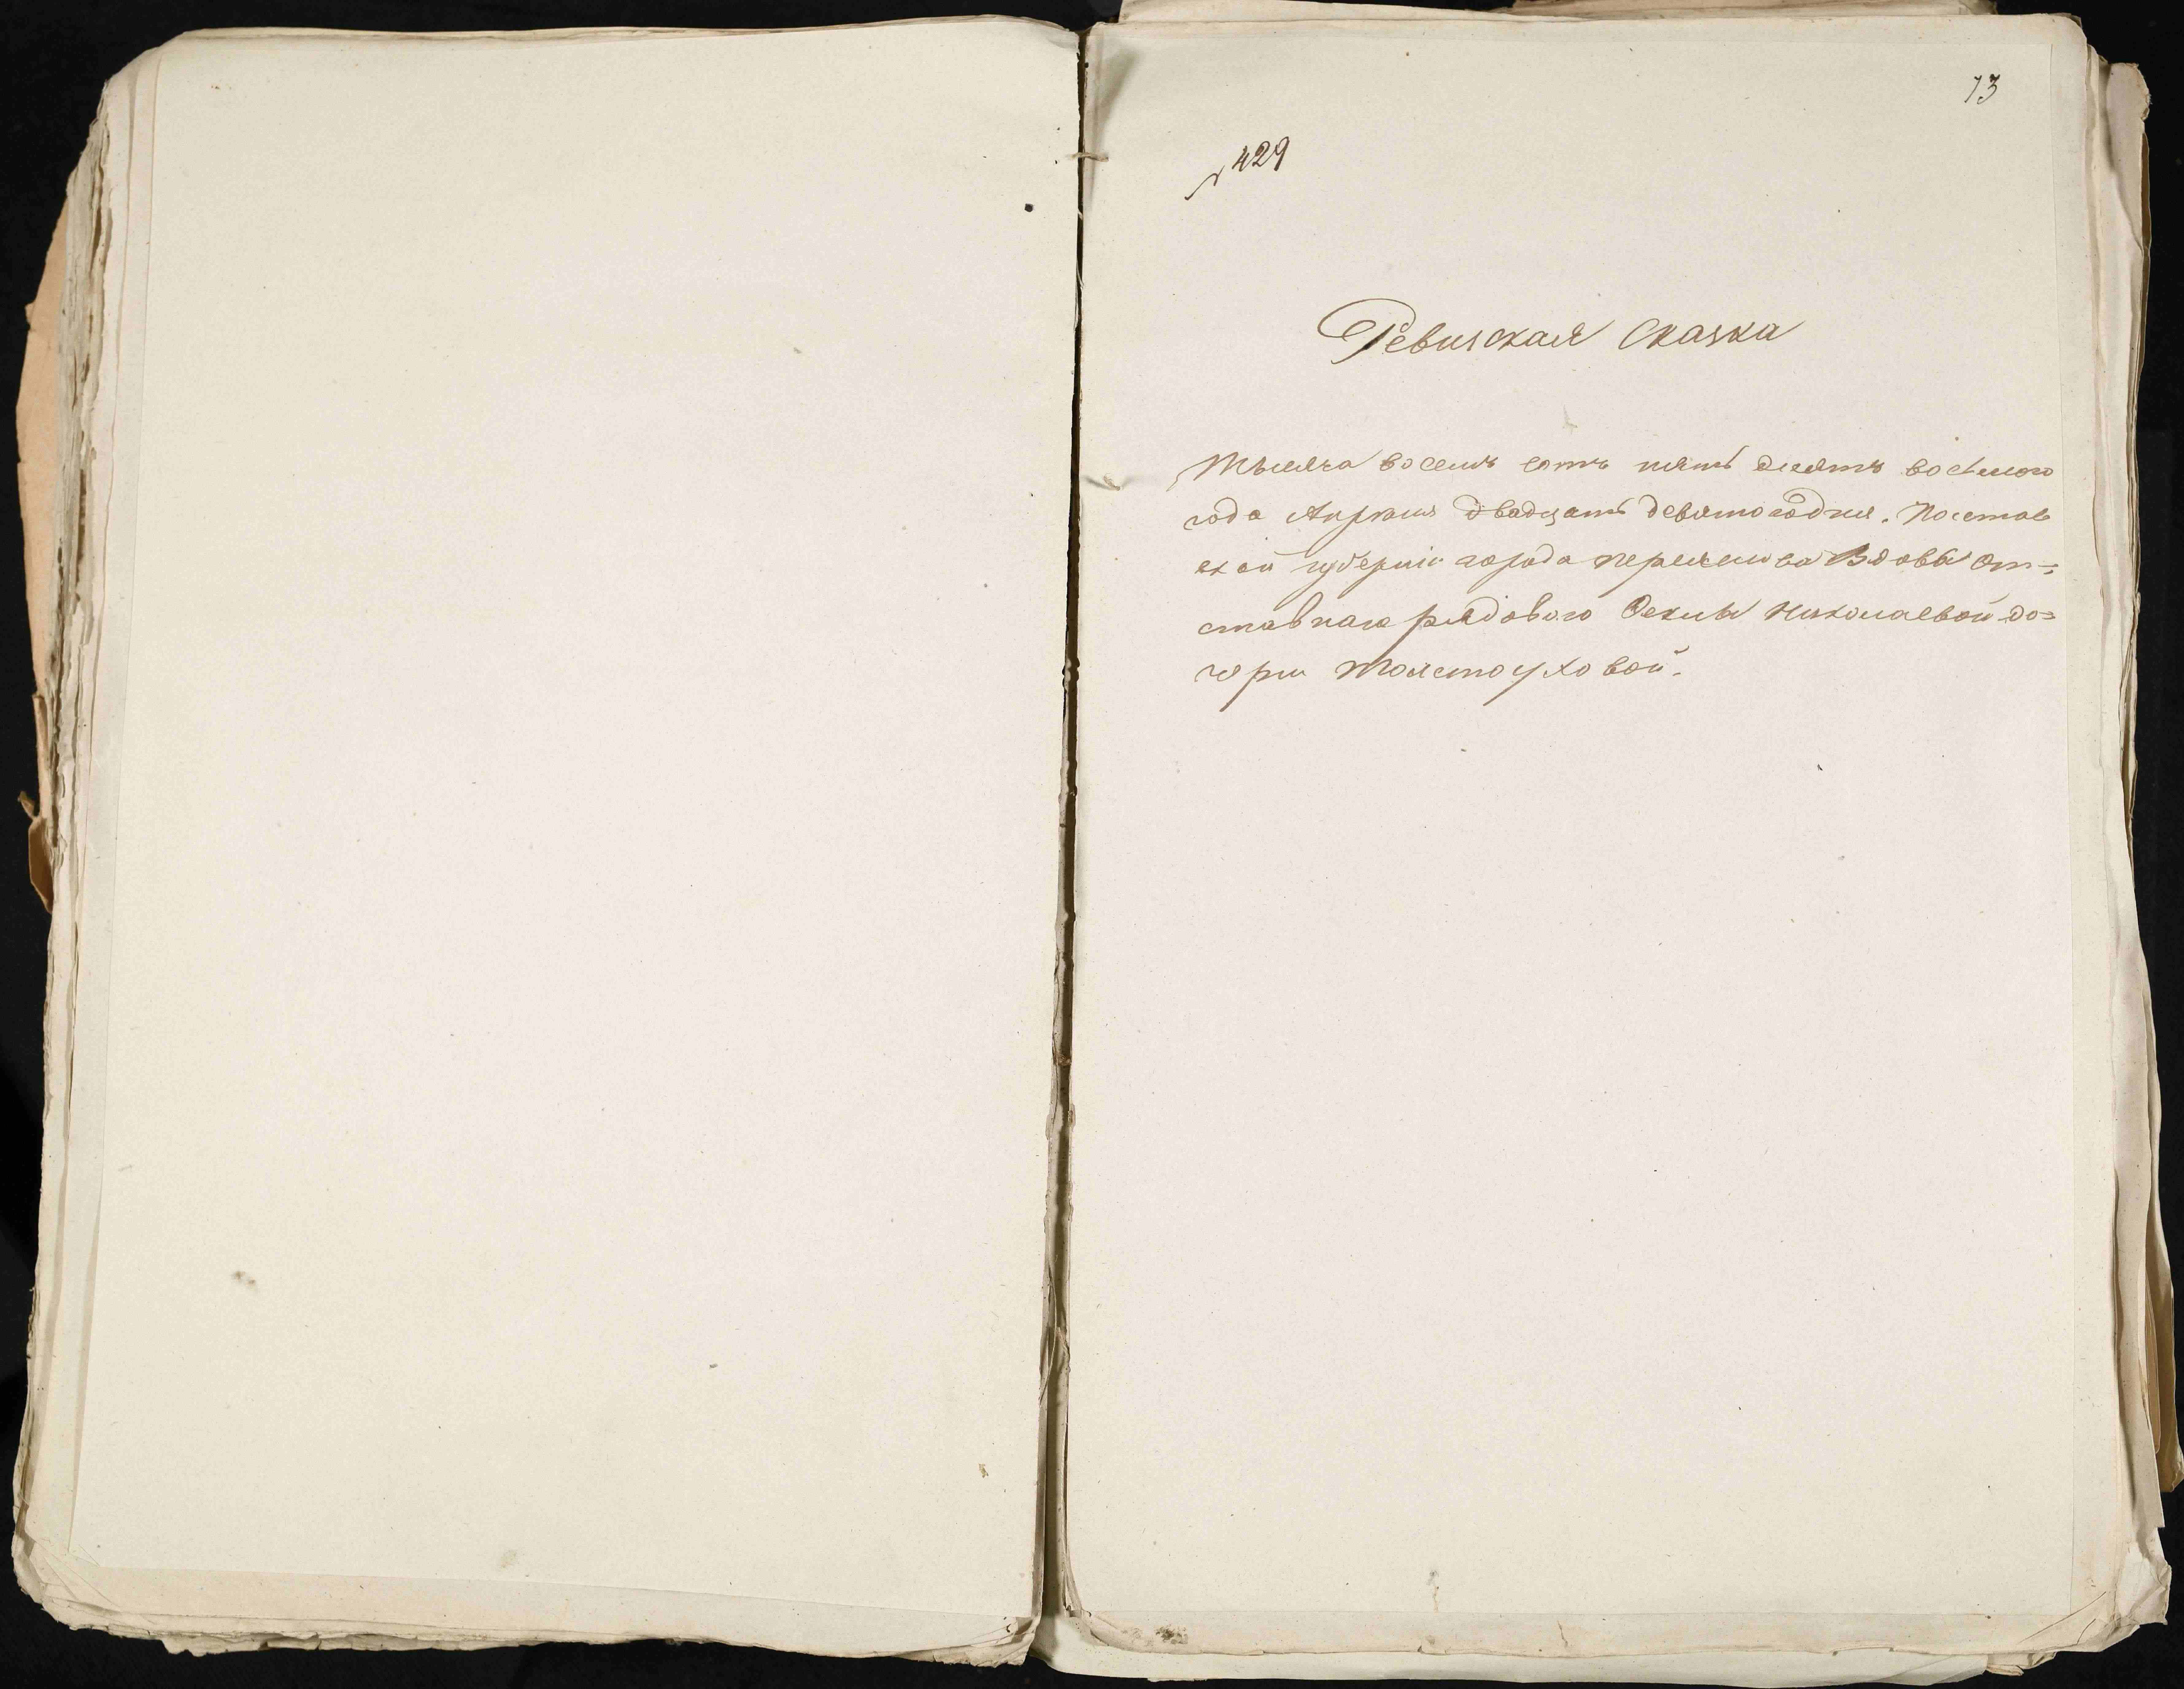 13
№ 429
Ревиская Сказка
Тысяча восемь сотъ пять десятъ восьмого
года Апреля двадцать девятого дня. Полтав
ской губерніи города Переяслова Вдовы От-
ставнаго рядового Феклы Николаевой до=
чери Толстоуховой.